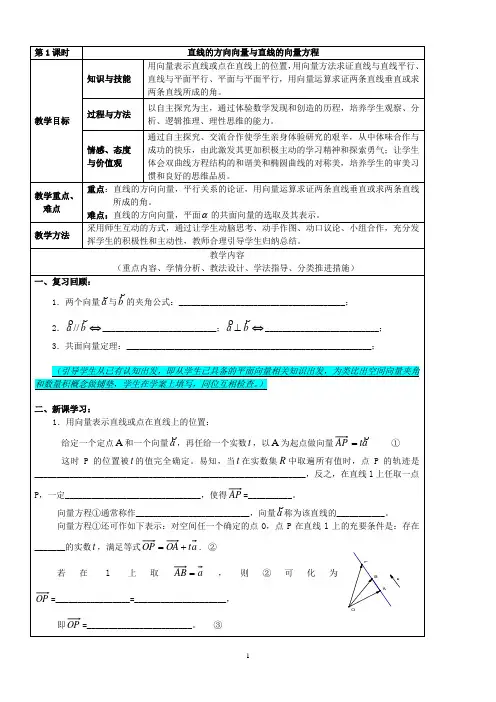 第1课时 直线的方向向量与直线的向量方程
教学目标
知识与技能
用向量表示直线或点在直线上的位置，用向量方法求证直线与直线平行、
直线与平面平行、平面与平面平行，用向量运算求证两条直线垂直或求
两条直线所成的角。
过程与方法
以自主探究为主，通过体验数学发现和创造的历程，培养学生观察、分
析、逻辑推理、理性思维的能力。
情感、态度
与价值观
通过自主探究、交流合作使学生亲身体验研究的艰辛，从中体味合作与
成功的快乐，由此激发其更加积极主动的学习精神和探索勇气；让学生
体会双曲线方程结构的和谐美和椭圆曲线的对称美，培养学生的审美习
惯和良好的思维品质。
教学重点、
难点
重点：直线的方向向量，平行关系的论证，用向量运算求证两条直线垂直或求两条直线
所成的角。
难点：直线的方向向量，平面α的共面向量的选取及其表示。
教学方法
采用师生互动的方式，通过让学生动脑思考、动手作图、动口议论、小组合作，充分发
挥学生的积极性和主动性，教师合理引导学生归纳总结。
教学内容
（重点内容、学情分析、教法设计、学法指导、分类推进措施）
一、复习回顾：
1．两个向量a与b的夹角公式：______________________________________；
2．a//b⇔__________________________；a⊥b⇔__________________________；
3．共面向量定理：________________________________________________________；
（引导学生从已有认知出发，即从学生已具备的平面向量相关知识出发，为类比出空间向量夹角
和数量积概念做铺垫，学生在学案上填写，同位互相检查。）
二、新课学习：
1．用向量表示直线或点在直线上的位置：
给定一个定点A和一个向量a，再任给一个实数t，以A为起点做向量AP=ta ①
这时P的位置被t的值完全确定。易知，当t在实数集R中取遍所有值时，点P的轨迹是
______________________________________________________________，反之，在直线l上任取一点
P，一定_______________________________，使得AP=__________。
向量方程①通常称作__________________________，向量a称为该直线的___________。
向量方程①还可作如下表示：对空间任一个确定的点O，点P在直线l上的充要条件是：存在
_______的实数t，满足等式OP=OA+ta．②
若在l上取AB=a，则②可化为
OP=_________________=_____________________，
即OP=________________________。 ③
1